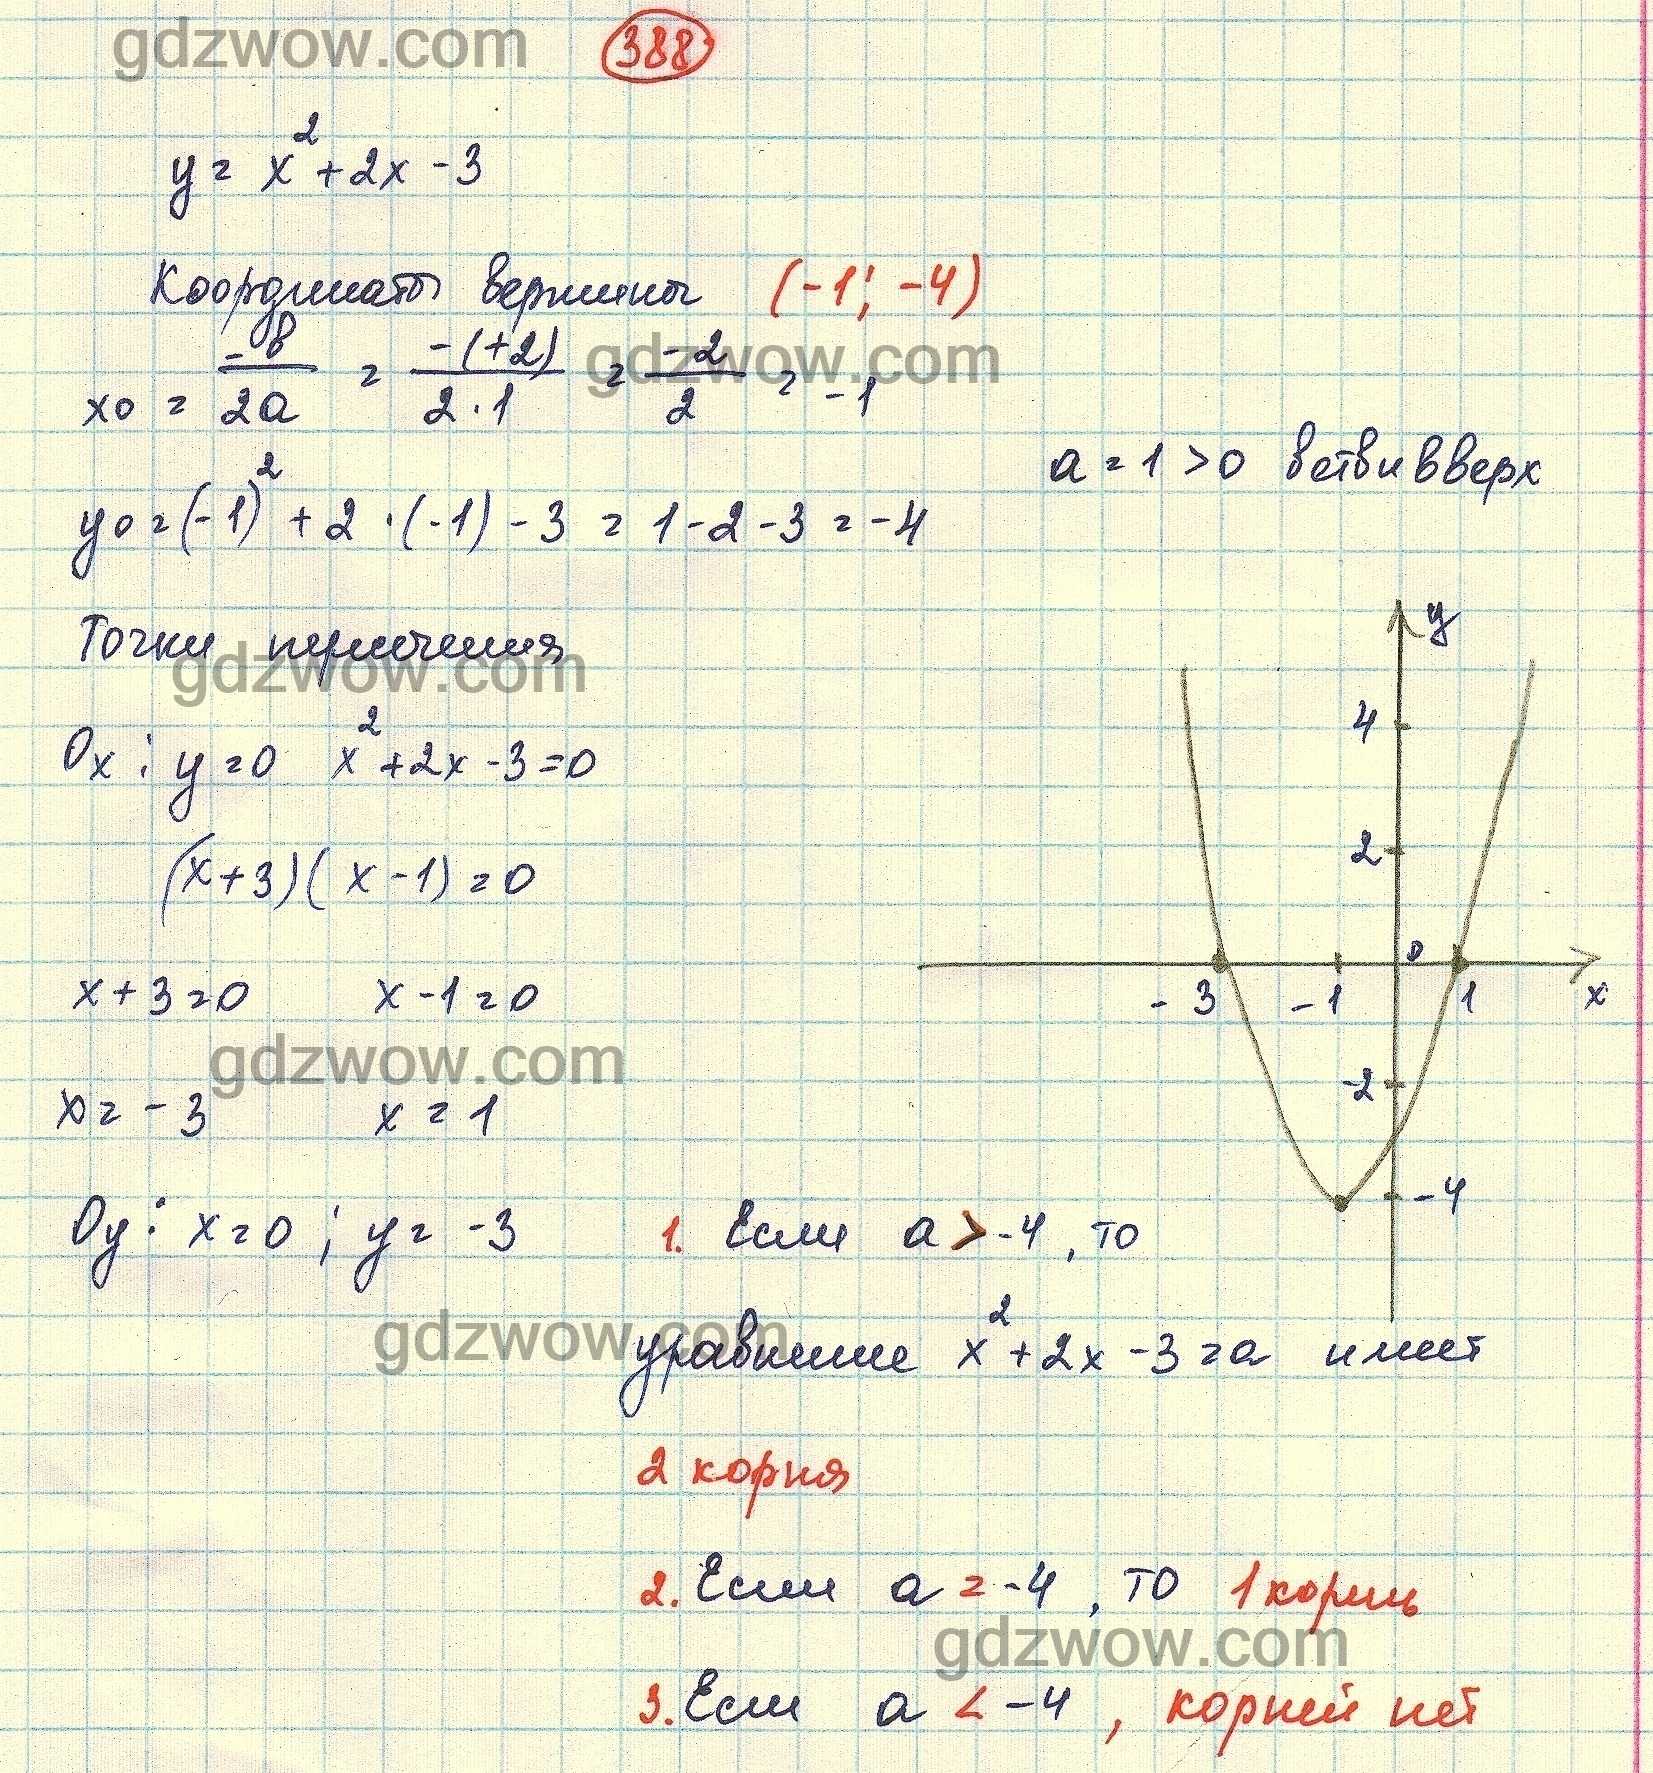 gdzwow.com
388
y = x² + 2x - 3
Координаты вершины (-1; -4)
gdzwow.com
x0 = -в/2a = -(+2)/2·1 = -2/2 = -1
a = 1 > 0 ветви вверх
y0 = (-1)² + 2 · (-1) - 3 = 1 - 2 - 3 = -4
Точки пересечения
gdzwow.com
Ox: y = 0 x² + 2x - 3 = 0
(x + 3)(x - 1) = 0
x + 3 = 0 x - 1 = 0
gdzwow.com
x = -3 x = 1
Oy: x = 0; y = -3
y
4
2
0
-3 -1 1 x
-2
-4
1. Если a > -4, то
gdzwow.com
уравнение x² + 2x - 3 = a имеет
2 корня
2. Если a = -4, то 1 корень
gdzwow.com
3. Если a < -4, корней нет